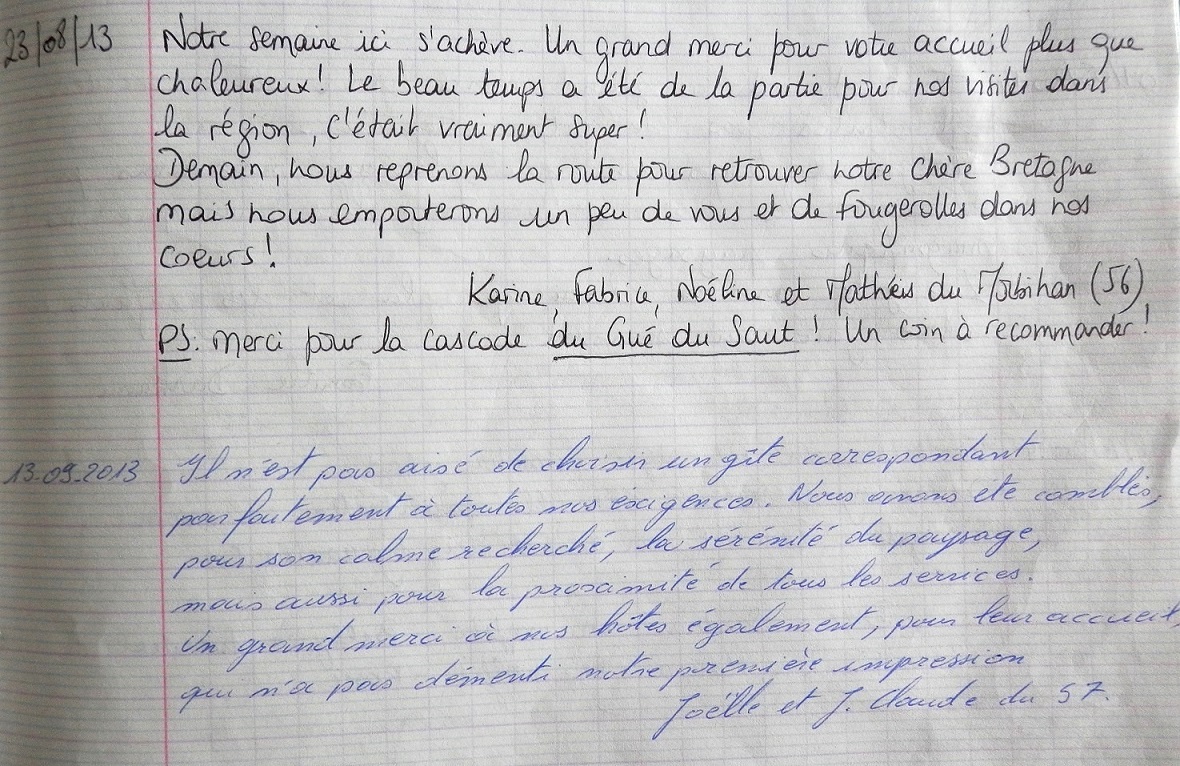 23/08/13 Notre semaine ici s'achève. Un grand merci pour votre accueil plus que
chaleureux! Le beau temps a été de la partie pour nos visites dans
la région, c'était vraiment super!
Demain, nous reprenons la route pour retrouver notre chère Bretagne
mais nous emporterons un peu de vous et de fougerolles dans nos
coeurs!
Karine, Fabrice, Noéline et Mathéis du Morbihan (56)
PS: merci pour la cascade du Gué du Saut! Un coin à recommander!
13.09.2013 Il n'est pas aisé de choisir un gîte correspondant
parfaitement à toutes nos exigences. Nous avons été comblés,
pour son calme recherché, la sérénité du paysage,
mais aussi pour la proximité de tous les services.
Un grand merci à nos hôtes également, pour leur accueil,
qui n'a pas démenti notre première impression
Joëlle et J. Claude du 57.